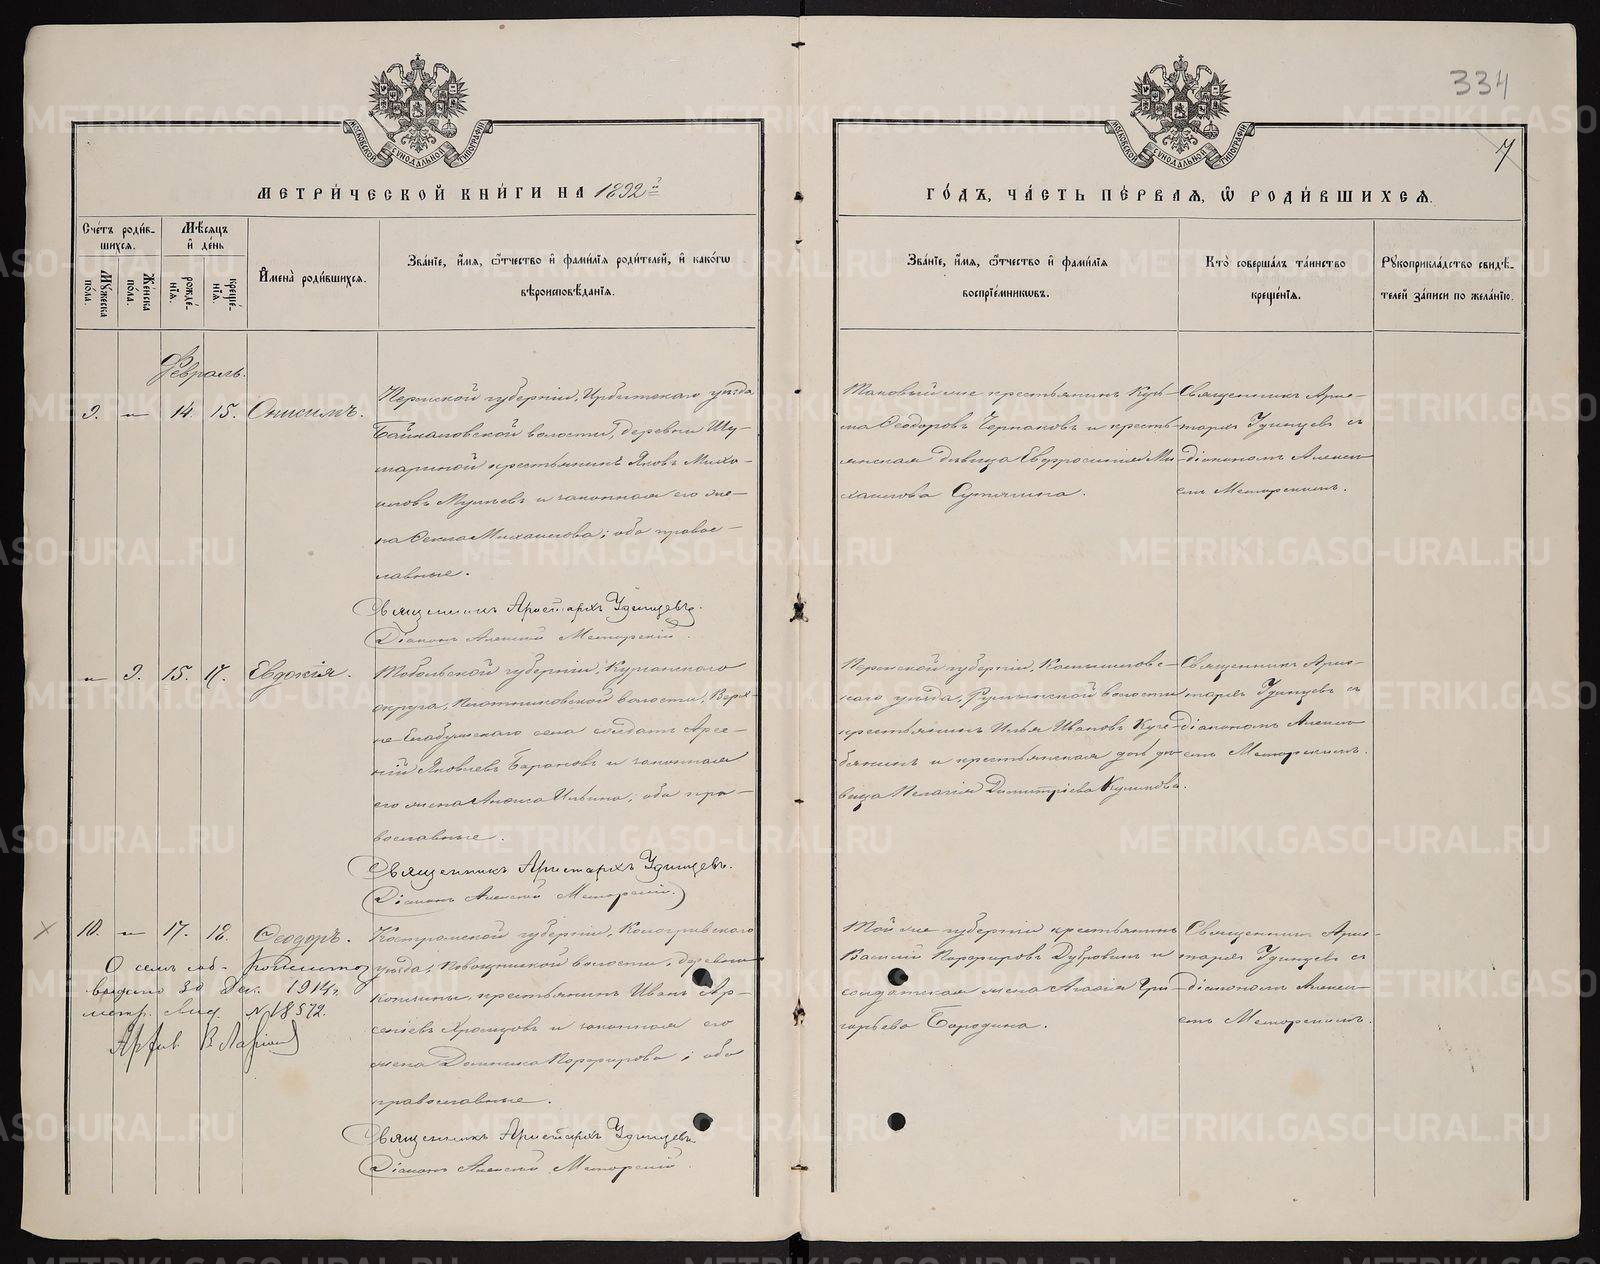 334
7
МОСКОВСКОЙ СУНОДАЛЬНОЙ ТИПОГРАФІИ
МОСКОВСКОЙ СУНОДАЛЬНОЙ ТИПОГРАФІИ
МЕТРИ́ЧЕСКОЙ КНИ́ГИ НА 1892й
ГО́ДЪ, ЧА́СТЬ ПЕ́РВАЯ, Ѿ РОДИ́ВШИХСЯ.
Сче́тъ роди́в-
шихся.
Мꙋжеска
по́ла.
Же́нска
по́ла.
Мѣ́сяцъ
и҆ де́нь
рожде́-
нїя.
креще́-
нїя.
И҆мена̀ роди́вшихся.
Зва́нїе, и҆́мя, ѻ҆́тчество и҆ фами́лїя роди́телей, и҆ како́гѡ
вѣроисповѣ́данїя.
Зва́нїе, и҆́мя, ѻ҆́тчество и҆ фами́лїя
воспрїе́мниковъ.
Кто̀ соверша́лъ та́инство
креще́нїя.
Рꙋкоприкла́дство свидѣ́-
телей за́писи по жела́нїю.
Февраль.
9. „ 14. 15. Онисимъ.
Пермской губерніи, Ирбитскаго уѣзда
Байкаловской волости, деревни Шу-
мариной крестьянинъ Яковъ Миха-
иловъ и законная его же-
на Ѳекла Михаилова; оба право-
славные.
Священникъ Аристархъ Удинцевъ.
Діаконъ Алексій Меморскій.
Таковый же крестьянинъ Кузь-
ма Ѳеодоровъ и кресть-
янская дѣвица Евфросинія Ми-
хаилова Сутягина.
Священникъ Арис-
тархъ Удинцевъ съ
діакономъ Алексі-
емъ Меморскимъ.
„ 9. 15. 17. Евдокія.
Тобольской губерніи, Курганскаго
округа, Плотниковской волости, Верх-
не- села солдатъ Арсе-
ній Яковлевъ Барановъ и законная
его жена Ильина; оба пра-
вославные.
Священникъ Аристархъ Удинцевъ.
Діаконъ Алексій Меморскій.
Пермской губерніи, Камышловс-
каго уѣзда, волости
крестьянинъ Илья Ивановъ
и крестьянская дочь дѣ-
вица Пелагія Димитріева Куликова.
Священникъ Арис-
тархъ Удинцевъ съ
діакономъ Алексі-
емъ Меморскимъ.
10. „ 17. 18. Ѳеодоръ.
О семъ соб-
выдано 30 Дек. 1914г.
метр. свид. №18572.
Костромской губерніи, Кологривскаго
уѣзда, волости, деревни
крестьянинъ Иванъ Ар-
сеніевъ и законная его
жена Домника Порфирова; оба
православные.
Священникъ Аристархъ Удинцевъ.
Діаконъ Алексій Меморскій.
Той же губерніи крестьянинъ
Василій Порфировъ Дубровинъ и
солдатская жена Агафія Гри-
горьева Бародина.
Священникъ Арис-
тархъ Удинцевъ съ
діакономъ Алексі-
емъ Меморскимъ.
METRIKI.GASO-URAL.RU